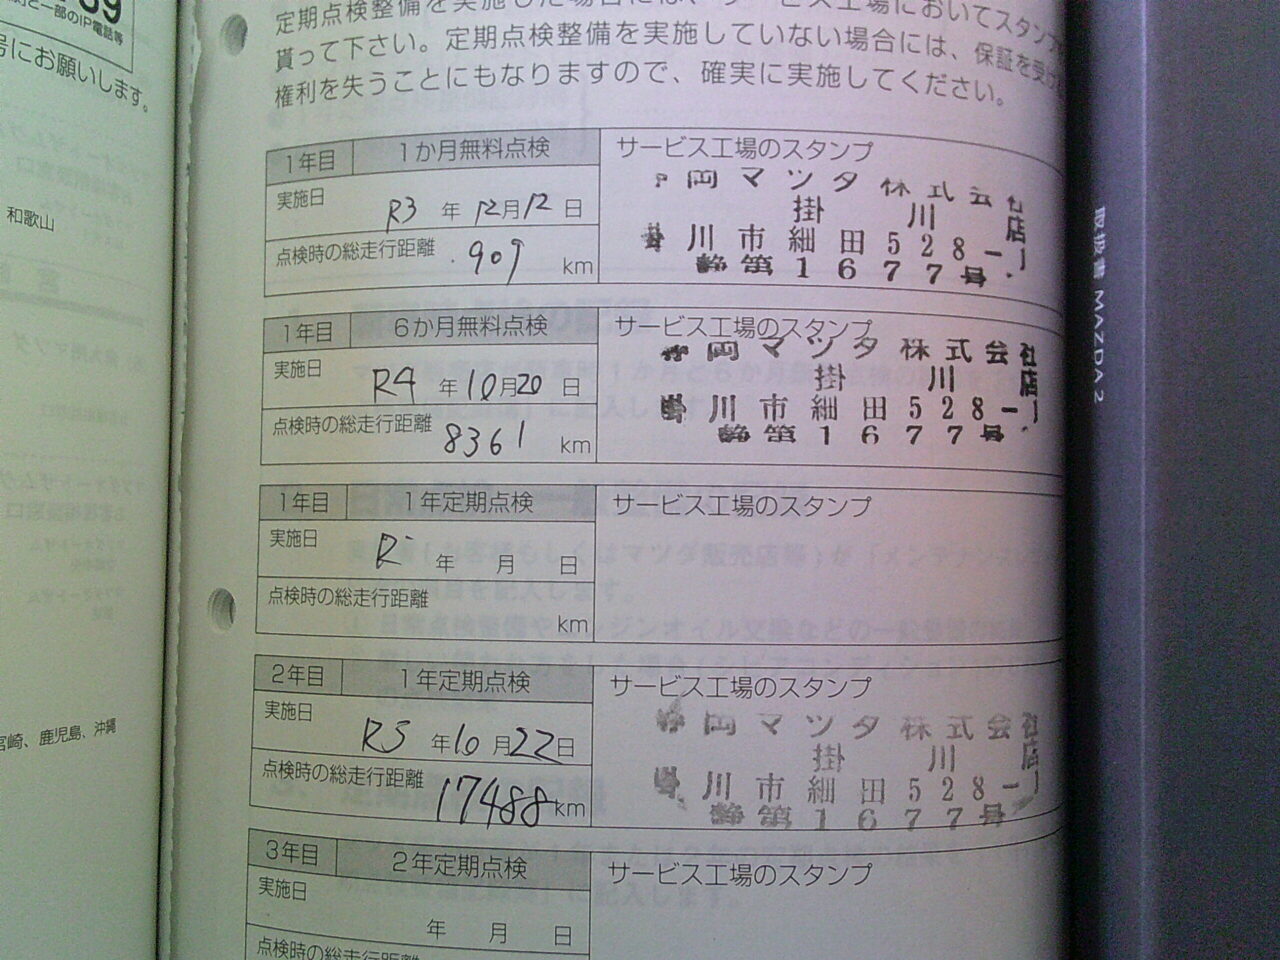 59
と一部のIP電話等
号にお願いします。
和歌山
宮崎、鹿児島、沖縄
定期点検整備を実施した場合には、サービス工場においてスタンプ
貰って下さい。定期点検整備を実施していない場合には、保証を受け
権利を失うことにもなりますので、確実に実施してください。
1年目 1か月無料点検 サービス工場のスタンプ
実施日 R3 年 12月12 日
点検時の総走行距離 909 km
岡マツダ株式会社
掛川店
川市細田528-1
静第1677号
1年目 6か月無料点検 サービス工場のスタンプ
実施日 R4 年 10月20 日
点検時の総走行距離 8361 km
静岡マツダ株式会社
掛川店
掛川市細田528-1
静第1677号
1年目 1年定期点検 サービス工場のスタンプ
実施日 R 年 月 日
点検時の総走行距離 km
2年目 1年定期点検 サービス工場のスタンプ
実施日 R5 年10月22日
点検時の総走行距離 17488 km
静岡マツダ株式会社
掛川店
掛川市細田528-1
静第1677号
3年目 2年定期点検 サービス工場のスタンプ
実施日 年 月 日
点検時の総走行距離
取扱書 MAZDA 2